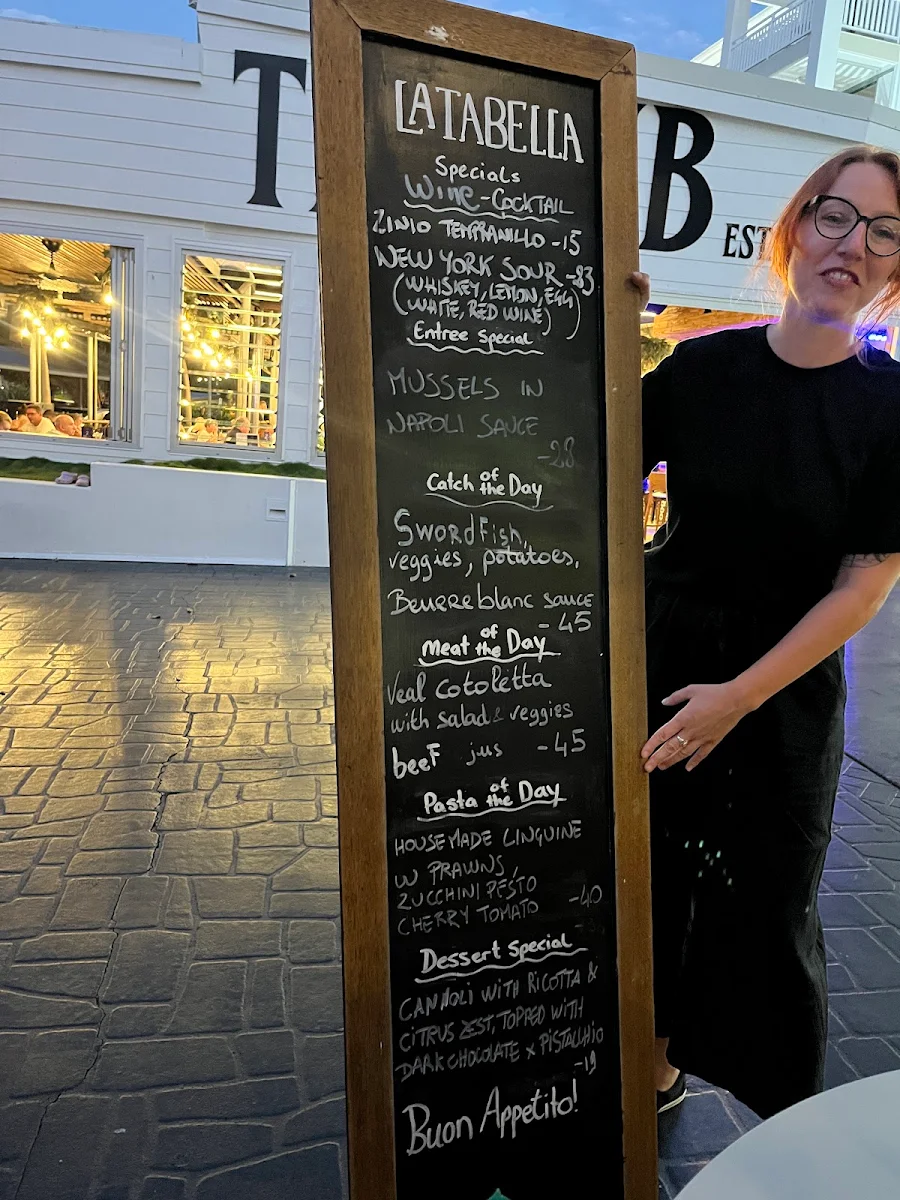 T B
EST
LA TABELLA
Specials
Wine-COCKTAIL
ZINIO TEMPRANILLO -15
NEW YORK SOUR -23
(WHISKEY, LEMON, EGG
WHITE, RED WINE)
Entree Special
MUSSELS IN
NAPOLI SAUCE
-28
Catch of the Day
Swordfish,
veggies, potatoes,
Beurre blanc sauce
- 45
Meat of the Day
Veal cotoletta
with salad & veggies
beef jus -45
Pasta of the Day
HOUSEMADE LINGUINE
W PRAWNS,
ZUCCHINI PESTO
CHERRY TOMATO -40
Dessert Special
CANNOLI WITH RICOTTA &
CITRUS ZEST, TOPPED WITH
DARK CHOCOLATE x PISTACHIO
-19
Buon Appetito!